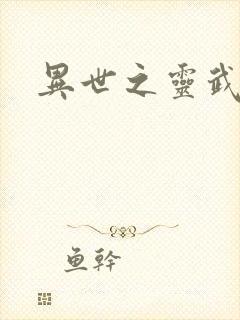 異世之靈武
鱼幹